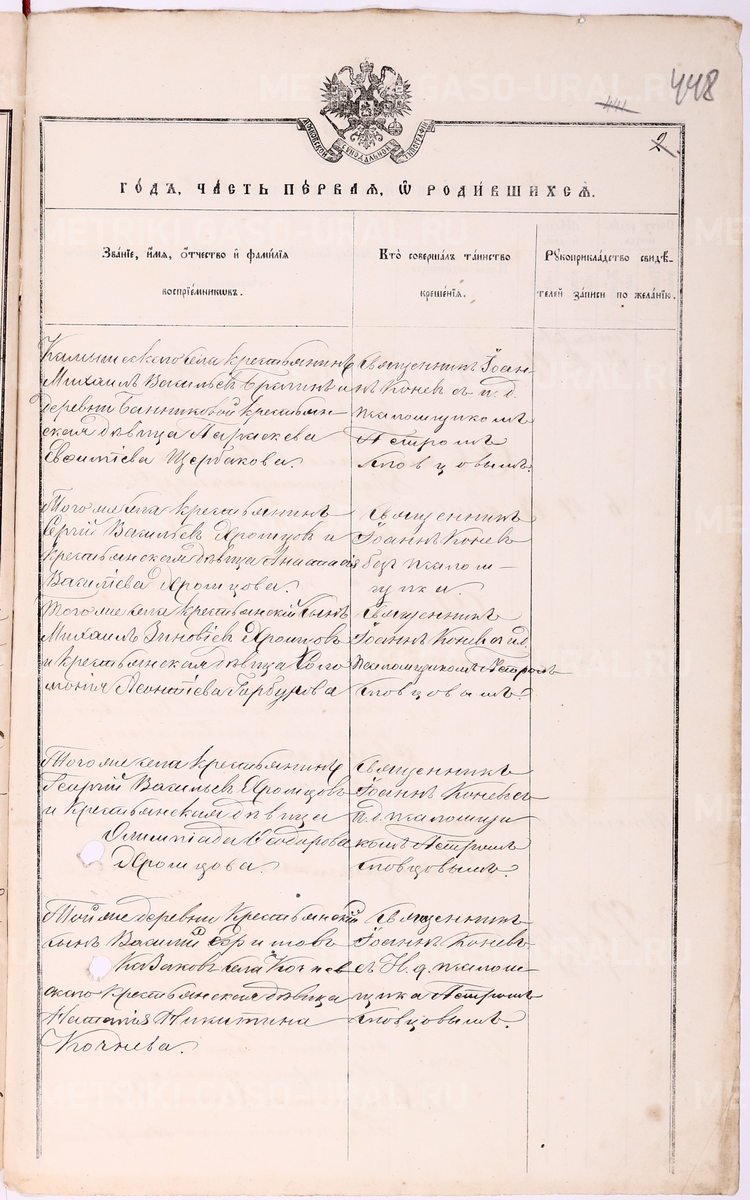 448
441
2
МОСКОВСКОЙ СѴНОДАЛЬНОЙ ТИПОГРАФІИ
ГОДЪ, ЧАСТЬ ПЕРВАЯ, Ѡ РОДИВШИХСѦ.
Званіе, имя, отчество и фамилія
воспріемниковъ.
Кто совершалъ таинство
крещенія.
Рукоприкладство свидѣ-
телей записи по желанію.
села крестьянинъ
Михаилъ Васильевъ и
деревни Банниковой крестьян-
ская дѣвица Параскева
Евфиміева Щербакова.
Священникъ Іоан-
нъ Коневъ съ и. д.
псаломщикомъ
Петромъ
Словцовымъ.
Того же села крестьянинъ
Сергій Васильевъ и
крестьянская дѣвица Анастасія
Васильева
Священникъ
Іоаннъ Коневъ
безъ псалом-
щика.
Того же села крестьянскій сынъ
Михаилъ Зиновіевъ
и крестьянская дѣвица Соло-
монія Леонтіева Горбунова
Священникъ
Іоаннъ Коневъ и.д.
псаломщикомъ Петромъ
Словцовымъ.
Того же села крестьянинъ
Георгій Васильевъ
и крестьянская дѣвица
Олимпіада
Священникъ
Іоаннъ Коневъ съ
и.д. псаломщи-
комъ Петромъ
Словцовымъ.
Той же деревни крестьянскій
сынъ Василій
Казаковъ села Кочнев-
скаго крестьянская дѣвица
Наталія Никитина
Кочнева.
Священникъ
Іоаннъ Коневъ
съ И. д. псалом-
щика Петромъ
Словцовымъ.
METRIKI.GASO-URAL.RU